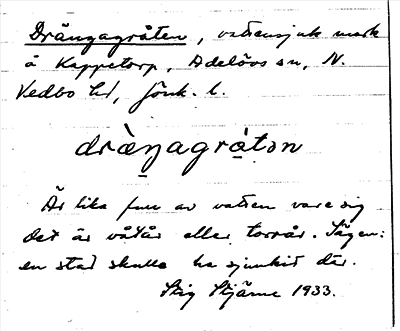 Drängagråten, vattensjuk mark
å Kappetorp, Adelövs sn, N.
Vedbo hd, Jönk. l.
dràŋagràtən
Är lika full av vatten vare sig
det är våtår eller torrår. Sägen:
en stad skulle ha sjunkit där.
Stig Stjärne 1933.